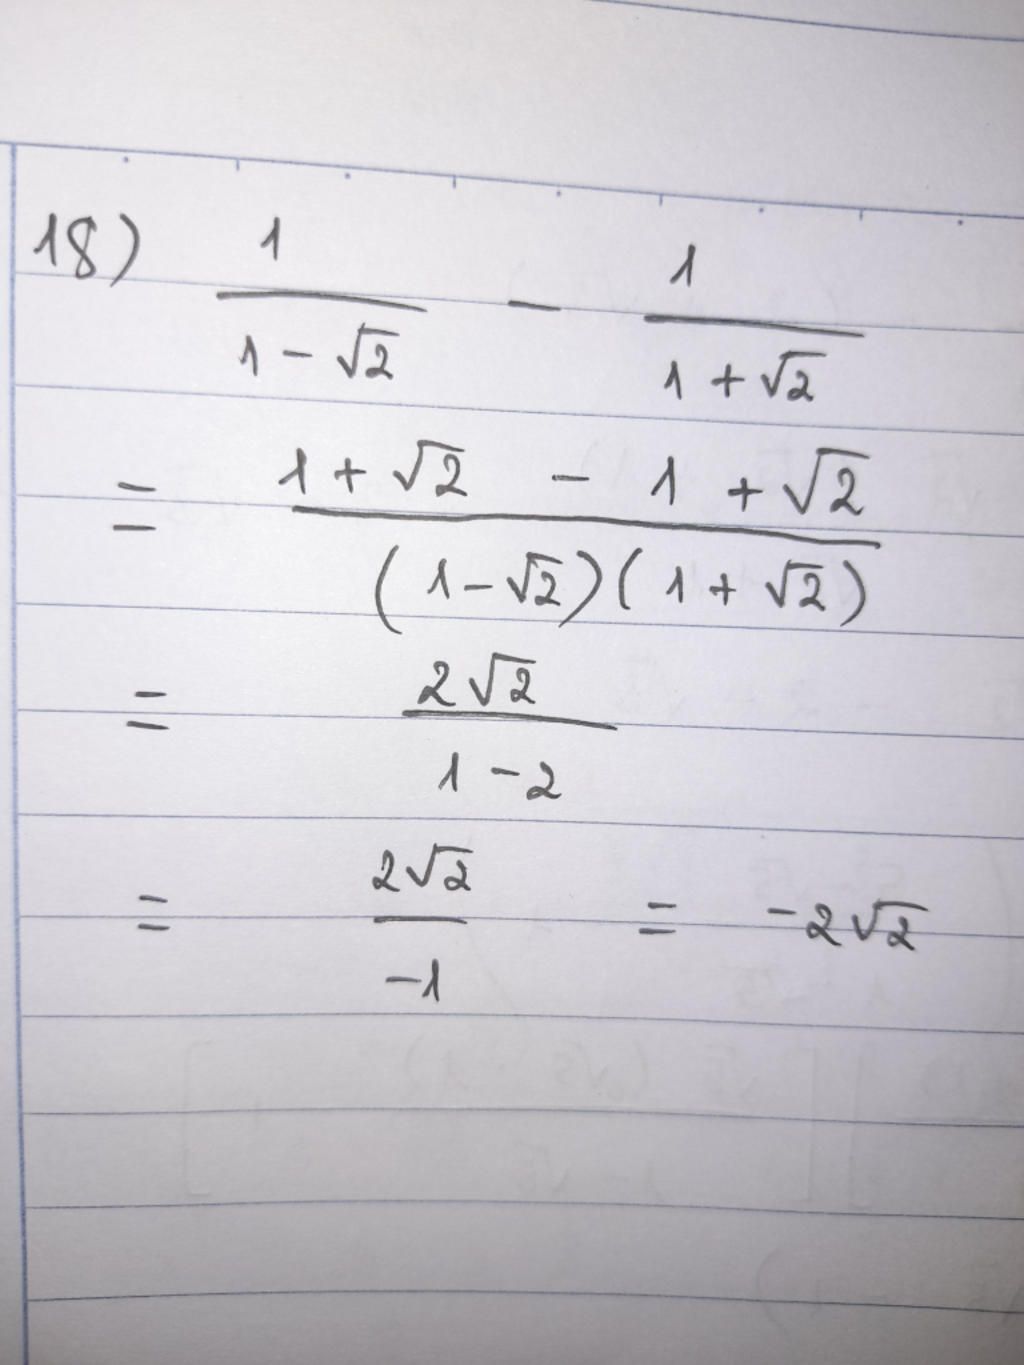 18) 1/(1 - √2) - 1/(1 + √2)
= (1 + √2 - 1 + √2)/((1 - √2)(1 + √2))
= 2√2/(1 - 2)
= 2√2/-1 = -2√2